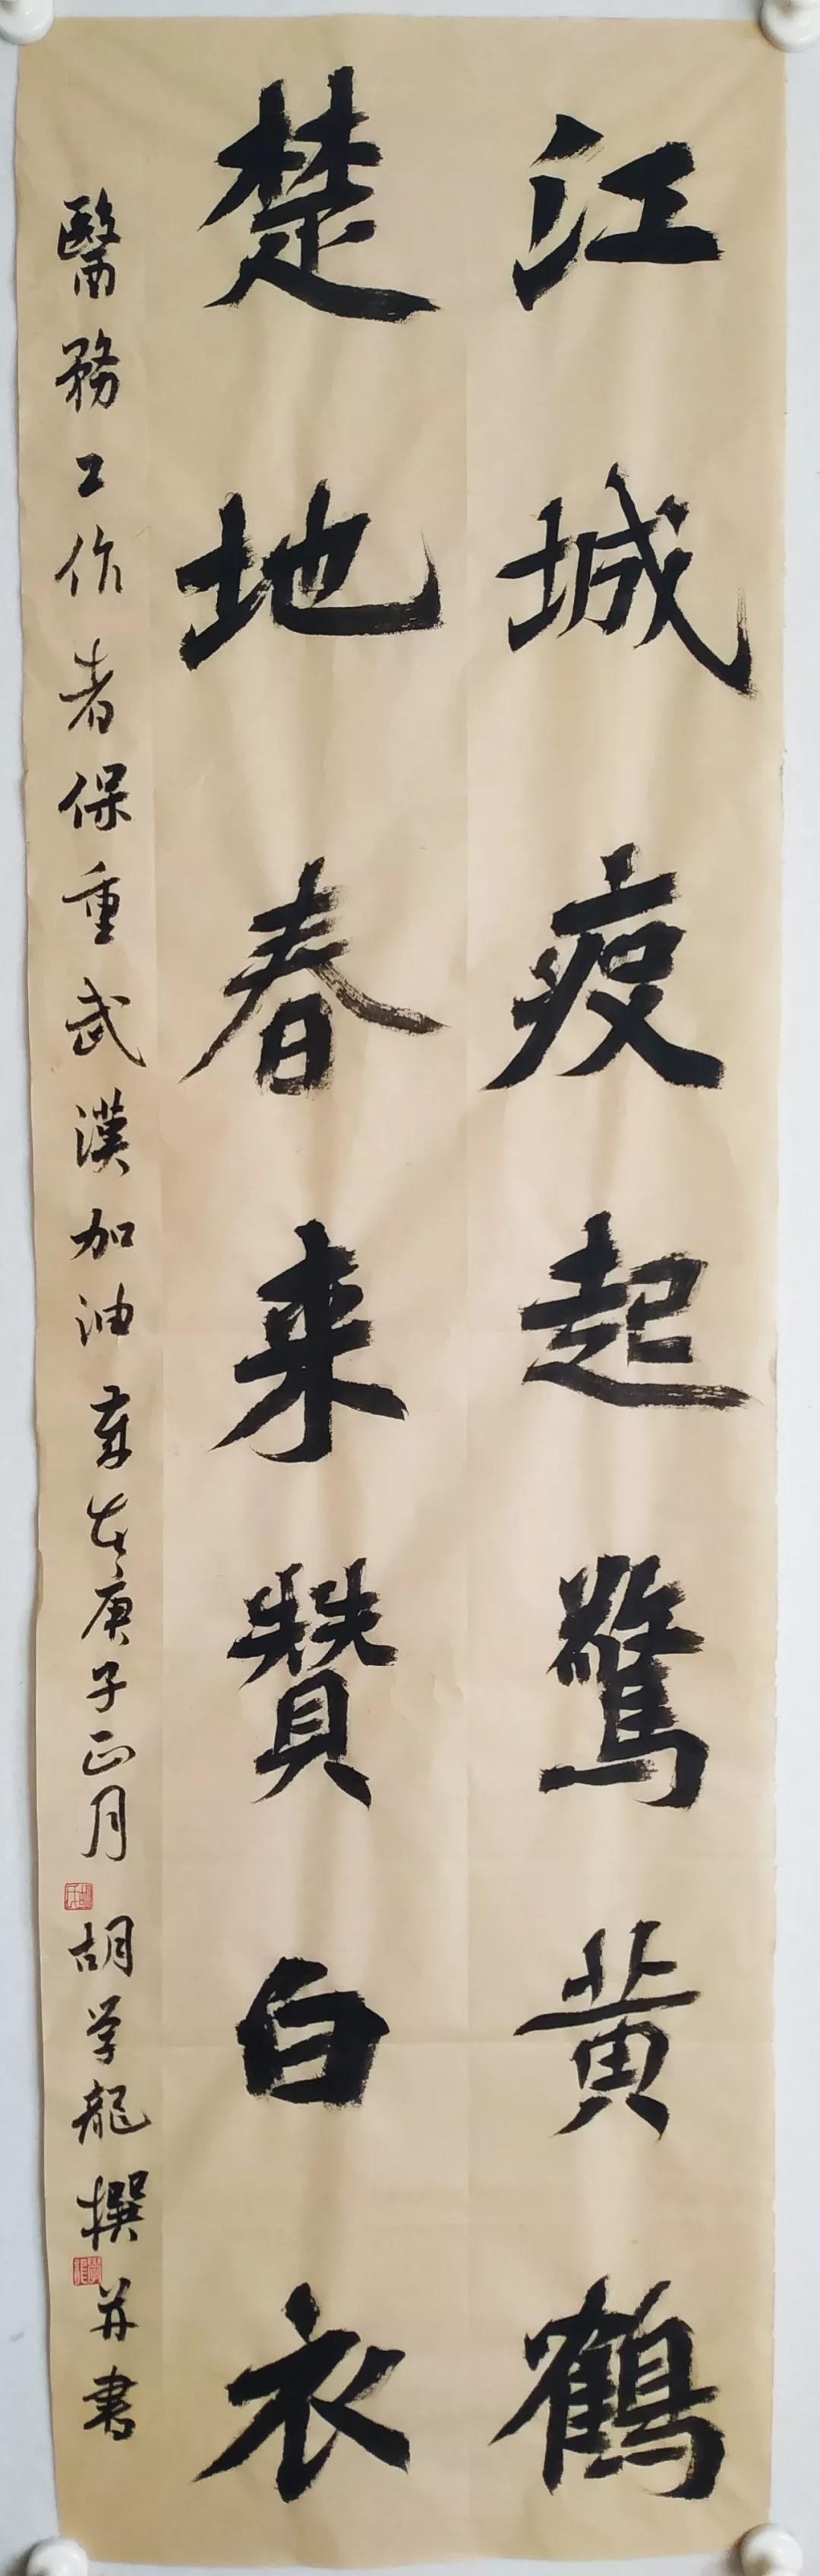 江城疫起驚黄鶴
楚地春来贊白衣
醫務工作者保重武漢加油 庚子正月 胡学龍撰并書